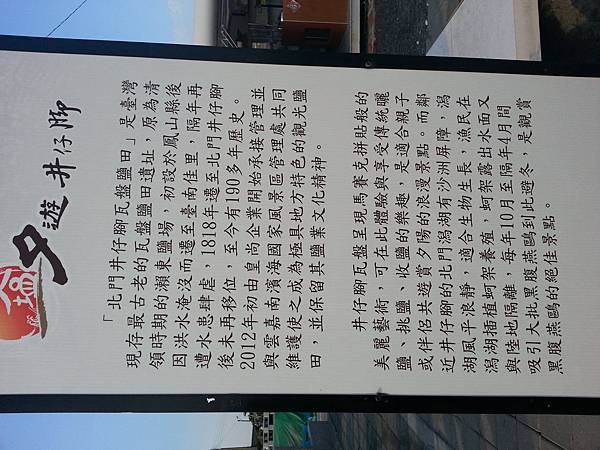 夕遊 井仔腳
「北門井仔腳瓦盤鹽田」是臺灣
現存最古老的瓦盤鹽田遺址，原為清
領時期的瀨東鹽場，初設於鳳山縣後
因洪水淹沒而遷至臺南佳里，隔年再
遭水患肆虐，1818年遷至北門井仔腳
後未再移位，至今有190多年歷史。
2012年初由皇尚企業開始承接管理並
與雲嘉南濱海國家風景區管理處共同
維護使之成為極具地方特色的觀光鹽
田，並保留其鹽業文化精神。
井仔腳瓦盤鹽田呈現馬賽克拼貼般的
美麗藝術，可在此體驗與享受傳統曬
鹽、挑鹽、收鹽的樂趣，是適合親子
或伴侶共遊賞夕陽的浪漫景點。而鄰
近井仔腳的北門潟湖有沙洲屏障，潟
湖風平浪靜，適合生物生長，漁民在
潟湖插植蚵架養殖，蚵架露出水面又
與陸地隔離，每年10月至隔年4月間
吸引大批黑腹燕鷗到此避冬，是觀賞
黑腹燕鷗的絕佳景點。